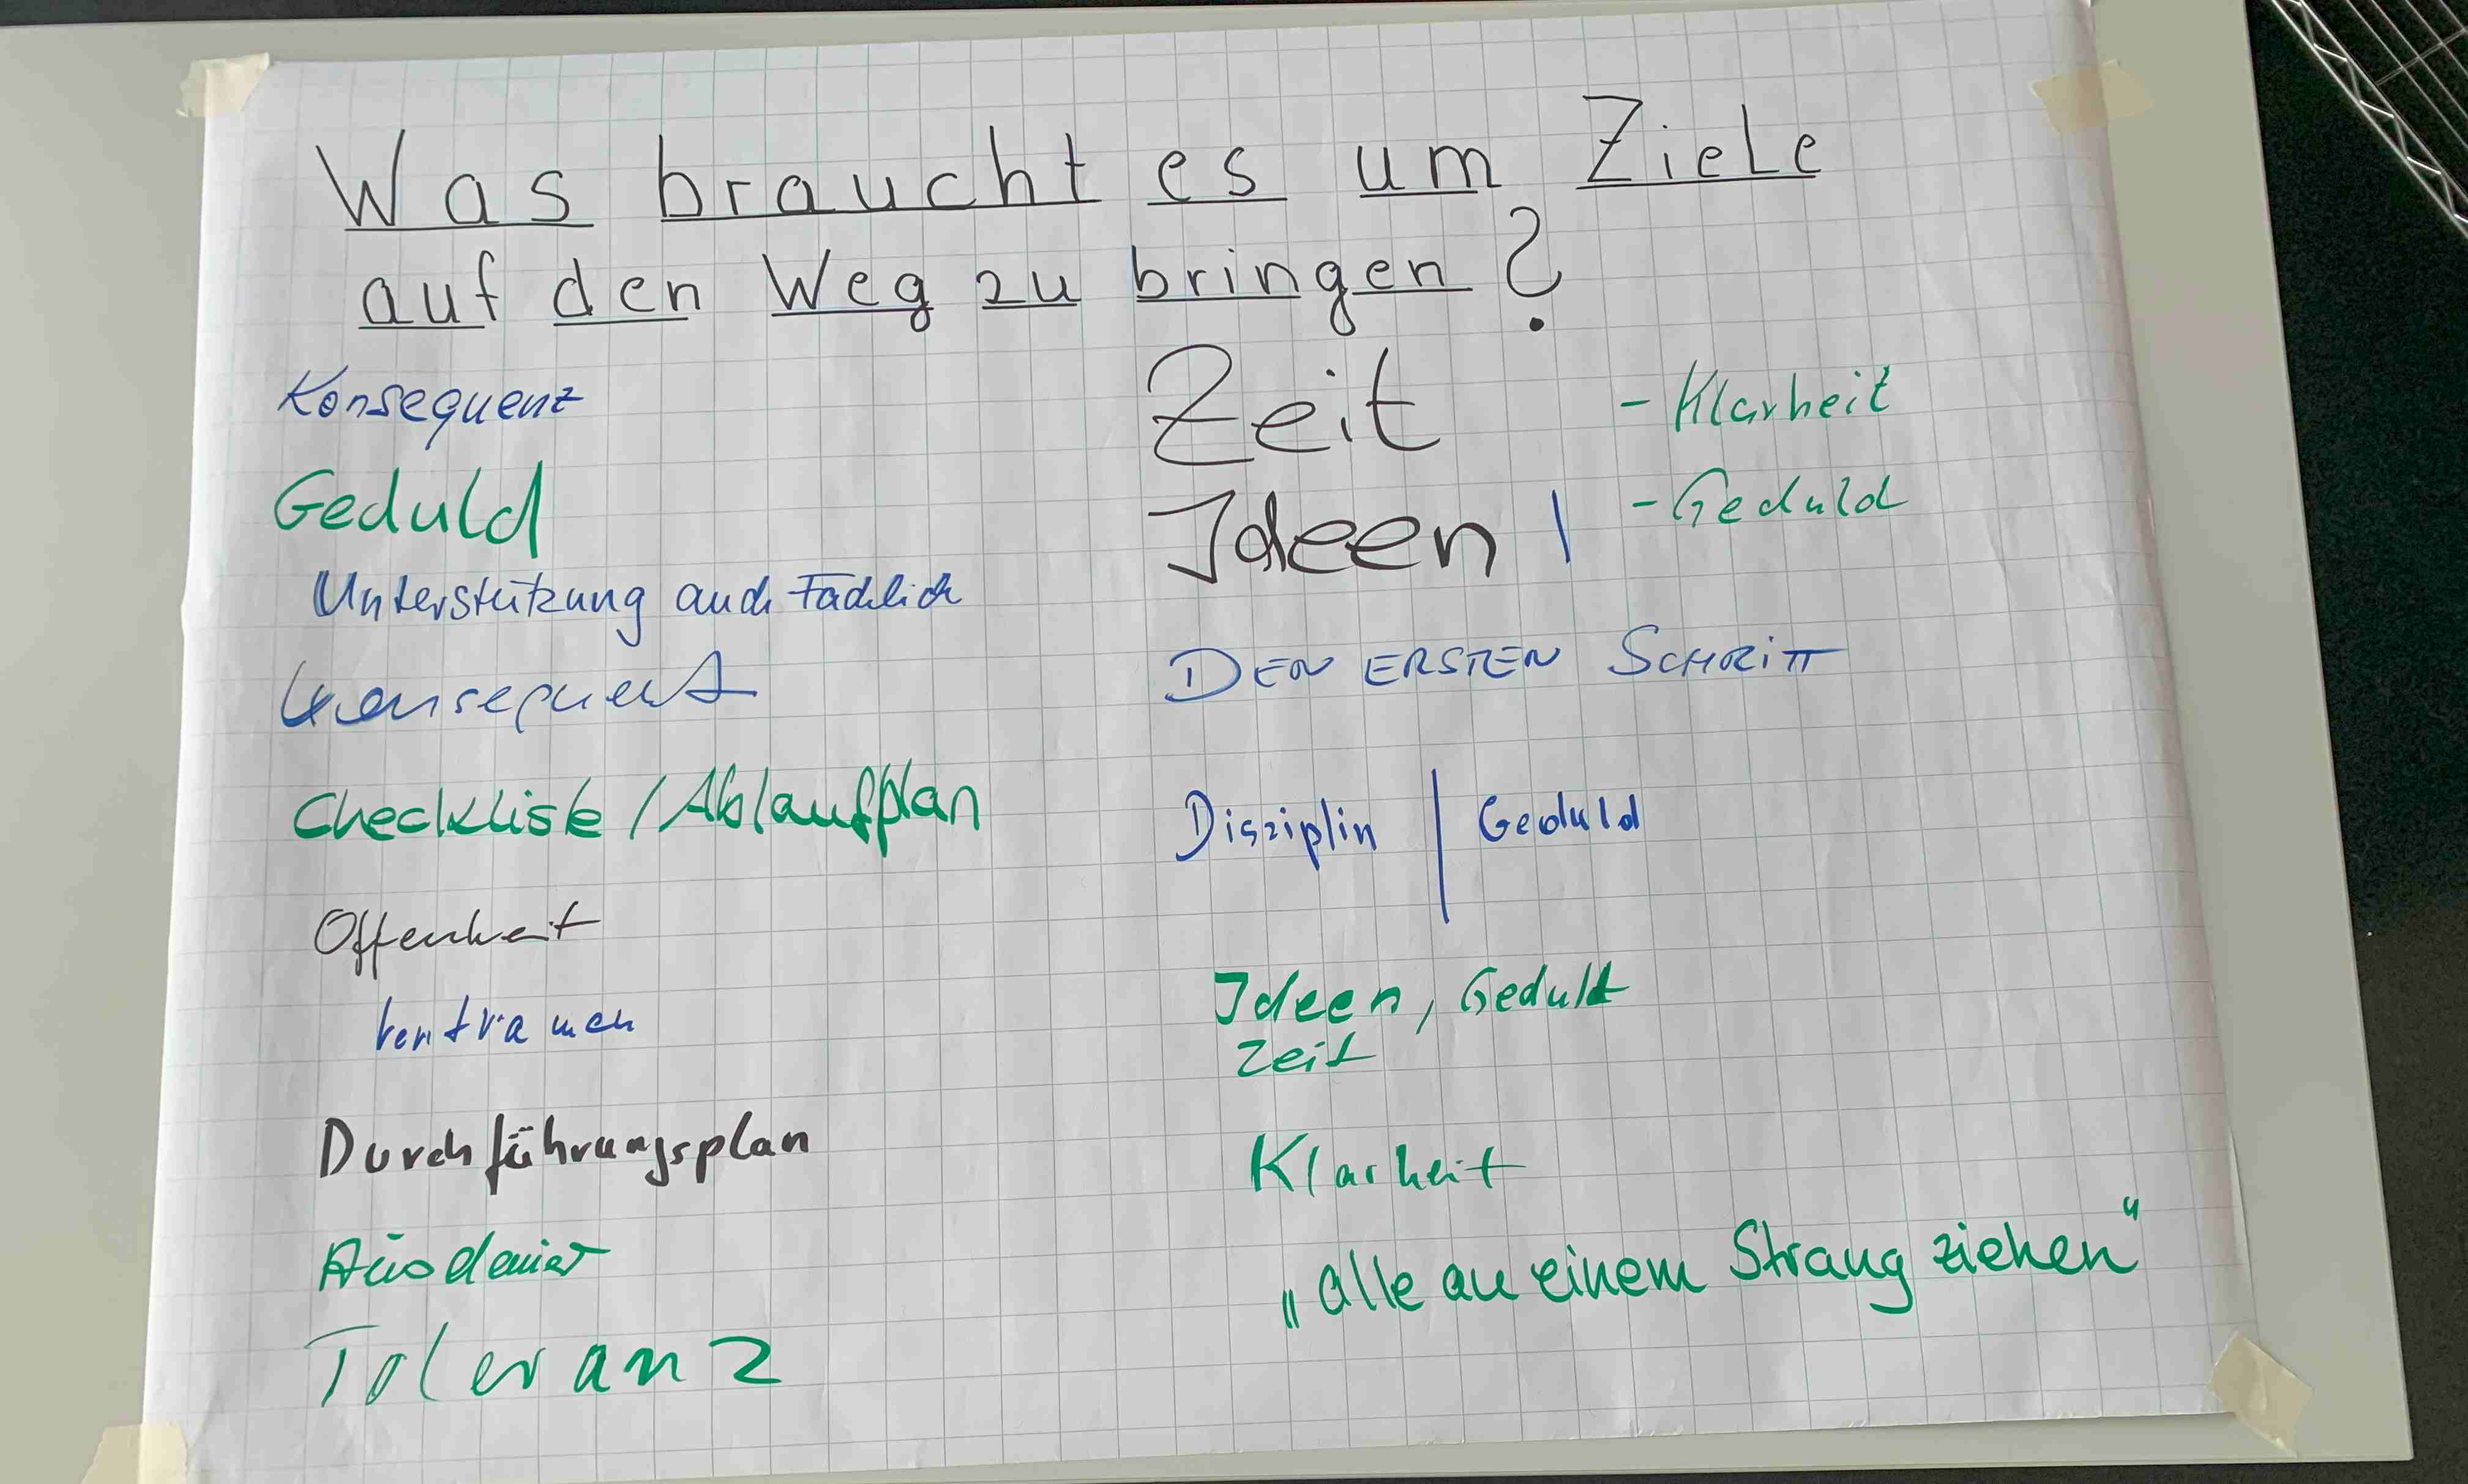 Was braucht es um Ziele
auf den Weg zu bringen?
Konsequenz
Geduld
Unterstützung auch Fachlich
Konsequent
Checkliste / Ablaufplan
Offenheit
Vertrauen
Durchführungsplan
Ausdauer
Toleranz
Zeit
Ideen |
- Klarheit
- Geduld
DEN ERSTEN SCHRiTT
Disziplin | Geduld
Ideen, Geduld
Zeit
Klarheit
„alle an einem Strang ziehen“